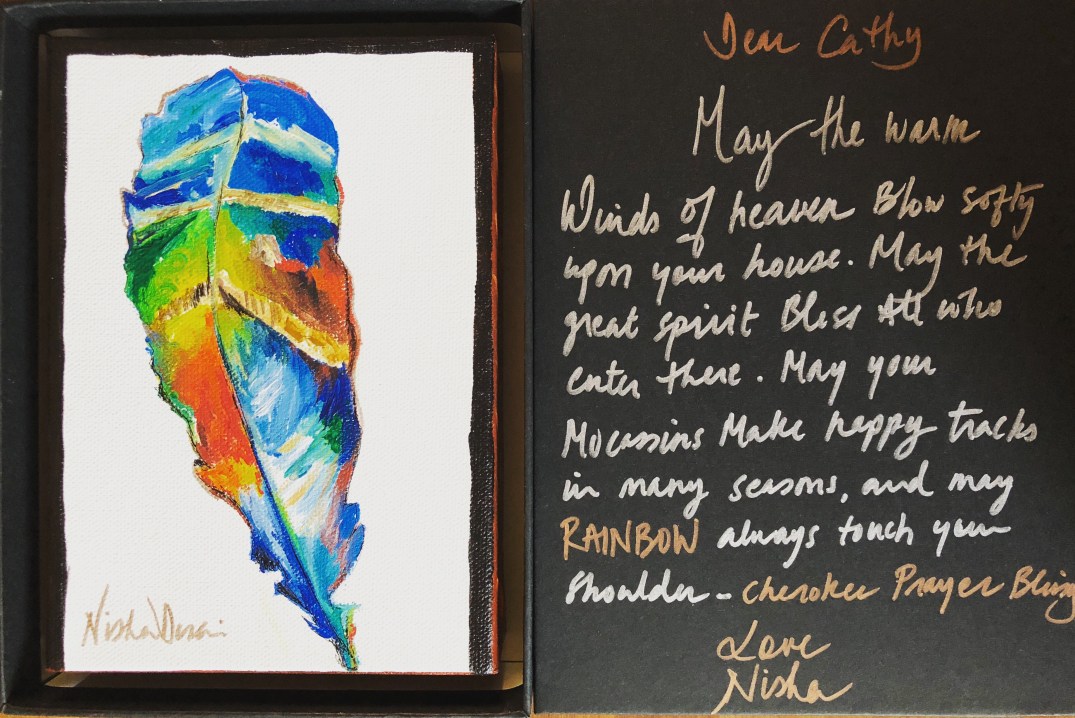 Nisha Desai
Dear Cathy
May the warm
Winds of heaven Blow softy
upon your house. May the
great spirit Bless All who
enter there. May your
Mocassins Make happy tracks
in many seasons, and may
RAINBOW always touch your
shoulder - cherokee Prayer Blsing
Love
Nisha